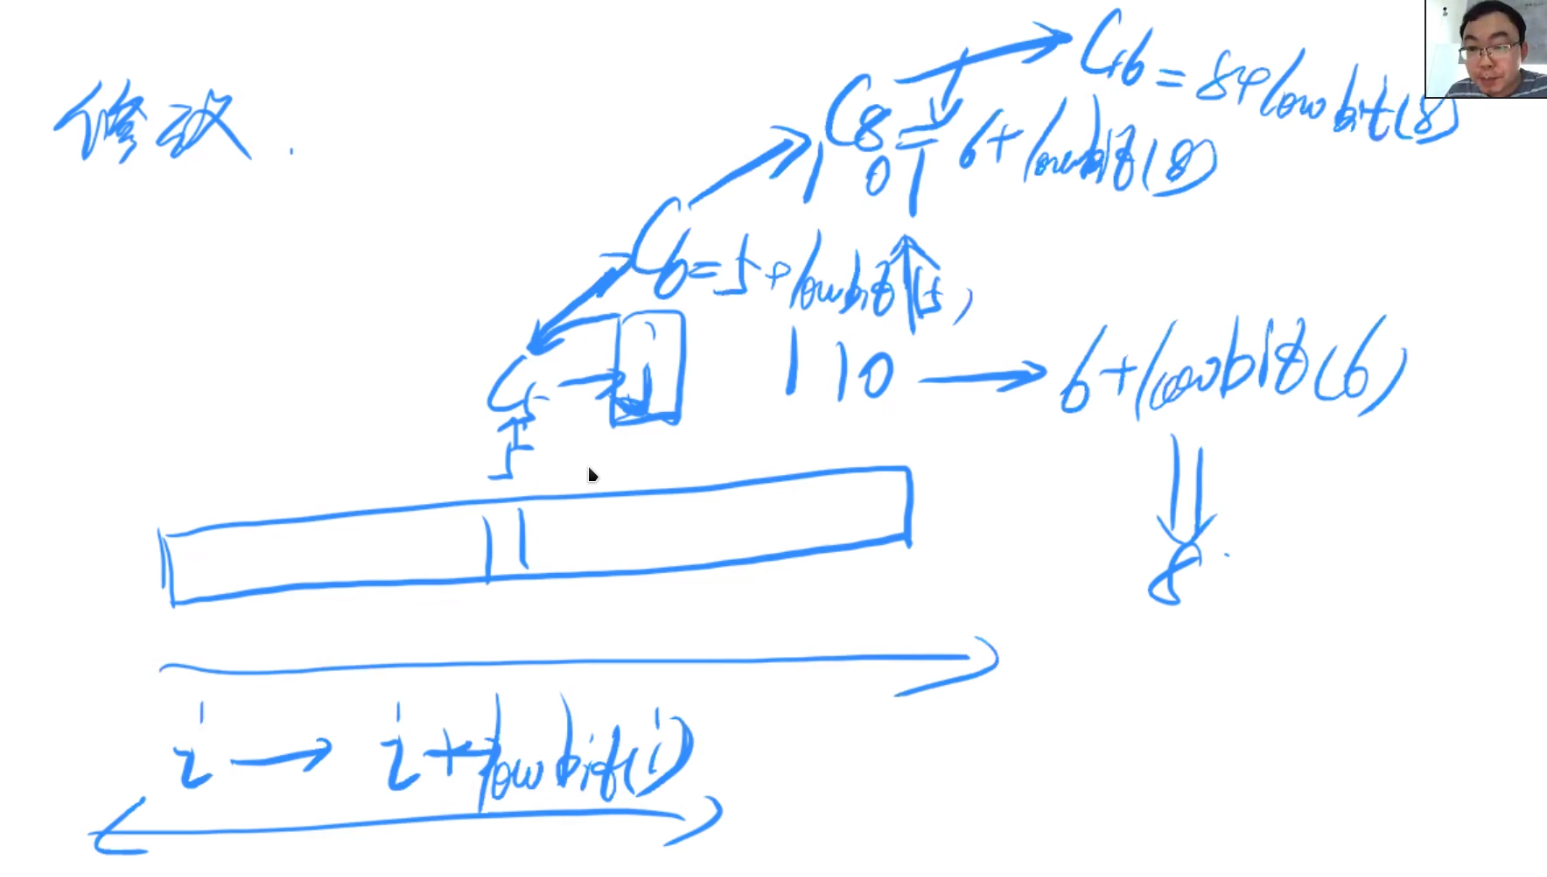 修改.
C16 = 8+lowbit(8)
C8 = 6+lowbit(8)
1 0 1
C6 = 5+lowbit(5)
C5
1 1 0 → 6+lowbit(6)
5
8
i → i+lowbit(i)